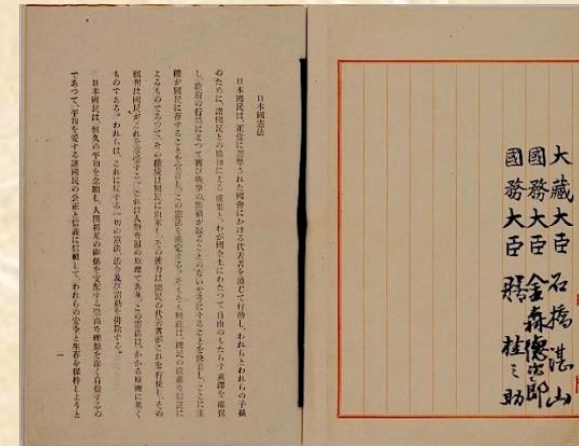 大藏大臣 石橋湛山
國務大臣 金森德次郎
國務大臣 膳桂之助
日本國憲法
日本國民は、正當に選擧された國會における代表者を通じて行動し、われらとわれらの子孫
のために、諸國民との協和による成果と、わが國全土にわたつて自由のもたらす惠澤を確保
し、政府の行爲によつて再び戰爭の慘禍が起ることのないやうにすることを決意し、ここに主
權が國民に存することを宣言し、この憲法を確定する。そもそも國政は、國民の嚴肅な信託に
よるものであつて、その權威は國民に由來し、その權力は國民の代表者がこれを行使し、その
福利は國民がこれを享受する。これは人類普遍の原理であり、この憲法は、かかる原理に基く
ものである。われらは、これに反する一切の憲法、法令及び詔勅を排除する。
日本國民は、恆久の平和を念願し、人間相互の關係を支配する崇高な理想を深く自覺するの
であつて、平和を愛する諸國民の公正と信義に信賴して、われらの安全と生存を保持しようと
一